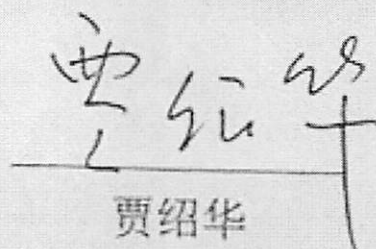 贾绍华
贾绍华